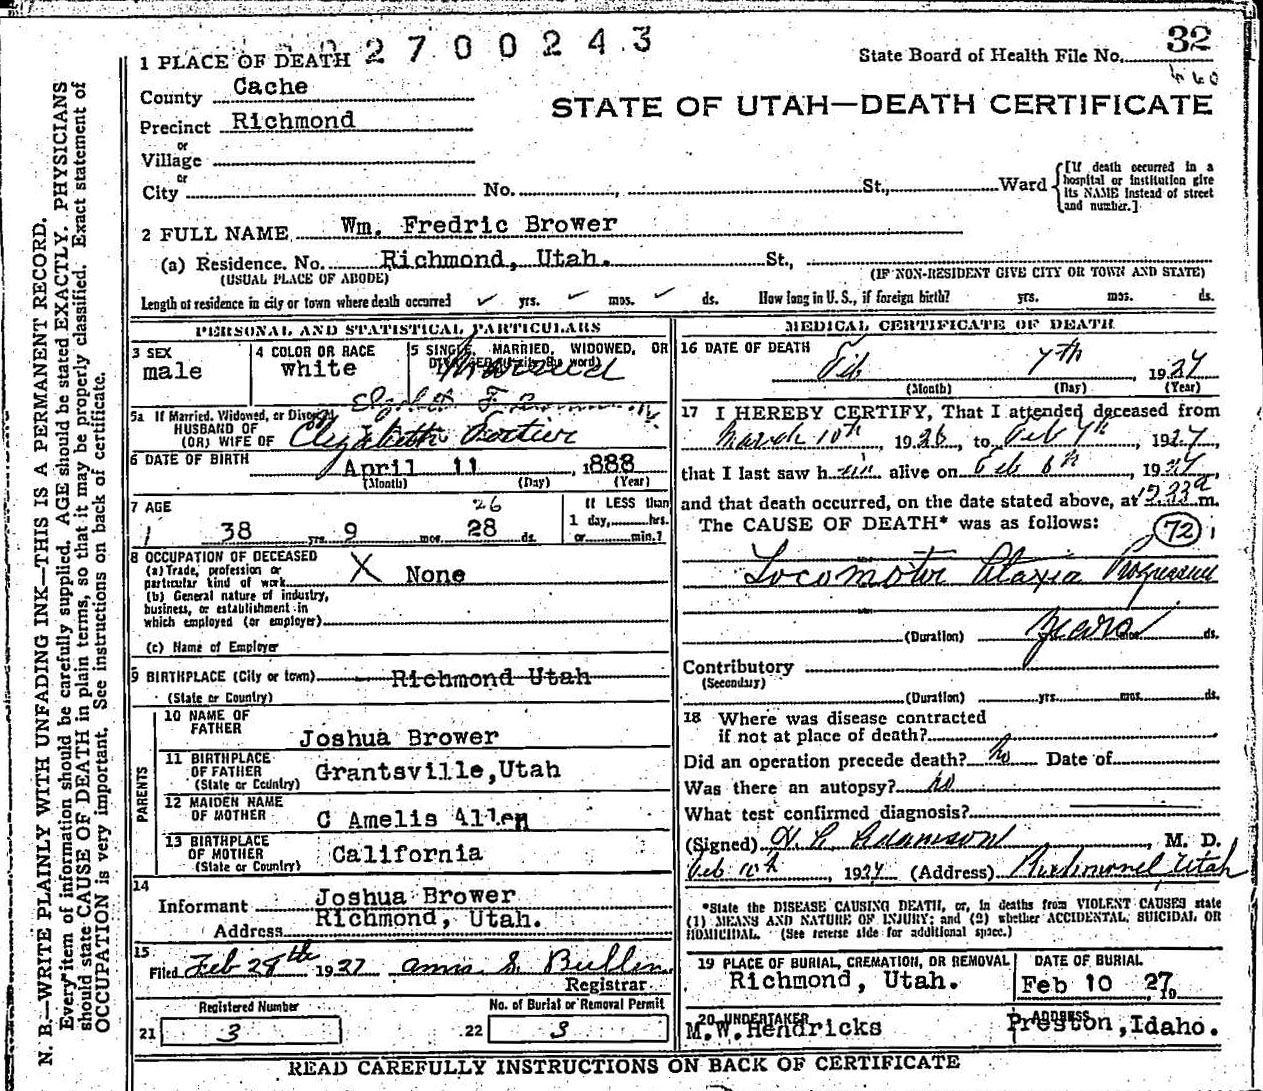 2 7 0 0 2 4 3
32
State Board of Health File No.
1 PLACE OF DEATH
County Cache
STATE OF UTAH—DEATH CERTIFICATE
Precinct Richmond
or
Village
or
City No. , St., Ward
[If death occurred in a hospital or institution give its NAME instead of street and number.]
2 FULL NAME Wm. Fredric Brower
(a) Residence. No. Richmond, Utah. St.,
(USUAL PLACE OF ABODE) (IF NON-RESIDENT GIVE CITY OR TOWN AND STATE)
Length of residence in city or town where death occurred yrs. mos. ds. How long in U. S., if foreign birth? yrs. mos. ds.
PERSONAL AND STATISTICAL PARTICULARS
3 SEX
male
4 COLOR OR RACE
white
5 SINGLE, MARRIED, WIDOWED, OR
Married
5a If Married, Widowed, or Divorced
HUSBAND OF
(OR) WIFE OF
6 DATE OF BIRTH April 11 , 1888
(Month) (Day) (Year)
7 AGE
26
38 yrs. 9 mos. 28 ds.
If LESS than
1 day, hrs.
or min.?
8 OCCUPATION OF DECEASED
(a) Trade, profession or
particular kind of work X None
(b) General nature of industry,
business, or establishment in
which employed (or employer)
(c) Name of Employer
9 BIRTHPLACE (City or town) Richmond Utah
(State or Country)
PARENTS
10 NAME OF
FATHER
Joshua Brower
11 BIRTHPLACE
OF FATHER Grantsville,Utah
(State or Country)
12 MAIDEN NAME
OF MOTHER C Amelis Allen
13 BIRTHPLACE
OF MOTHER California
(State or Country)
14
Informant Joshua Brower
Address Richmond, Utah.
15
Filed Feb 28th 1927 Anna S. Bullen
Registrar
Registered Number
21 3
No. of Burial or Removal Permit
22 3
MEDICAL CERTIFICATE OF DEATH
16 DATE OF DEATH
Feb 7th , 1927
(Month) (Day) (Year)
17 I HEREBY CERTIFY, That I attended deceased from
March 10th, 1926, to Feb 7th, 1927,
that I last saw him alive on Feb 6th, 1927,
and that death occurred, on the date stated above, at m.
The CAUSE OF DEATH* was as follows:
72
Locomotor Ataxia Progressive
(Duration) years mos. ds.
Contributory
(Secondary)
(Duration) yrs. mos. ds.
18 Where was disease contracted
if not at place of death?
Did an operation precede death? no Date of
Was there an autopsy? no
What test confirmed diagnosis?
(Signed) Adamson, M. D.
Feb 10th, 1927 (Address) Richmond, Utah
*State the DISEASE CAUSING DEATH, or, in deaths from VIOLENT CAUSES state
(1) MEANS AND NATURE OF INJURY; and (2) whether ACCIDENTAL, SUICIDAL OR
HOMICIDAL. (See reverse side for additional space.)
19 PLACE OF BURIAL, CREMATION, OR REMOVAL
Richmond, Utah.
DATE OF BURIAL
Feb 10 27 19
20 UNDERTAKER
M.W.Hendricks
ADDRESS
Preston,Idaho.
READ CAREFULLY INSTRUCTIONS ON BACK OF CERTIFICATE
N. B.—WRITE PLAINLY WITH UNFADING INK—THIS IS A PERMANENT RECORD.
Every item of information should be carefully supplied. AGE should be stated EXACTLY. PHYSICIANS
should state CAUSE OF DEATH in plain terms, so that it may be properly classified. Exact statement of
OCCUPATION is very important. See instructions on back of certificate.